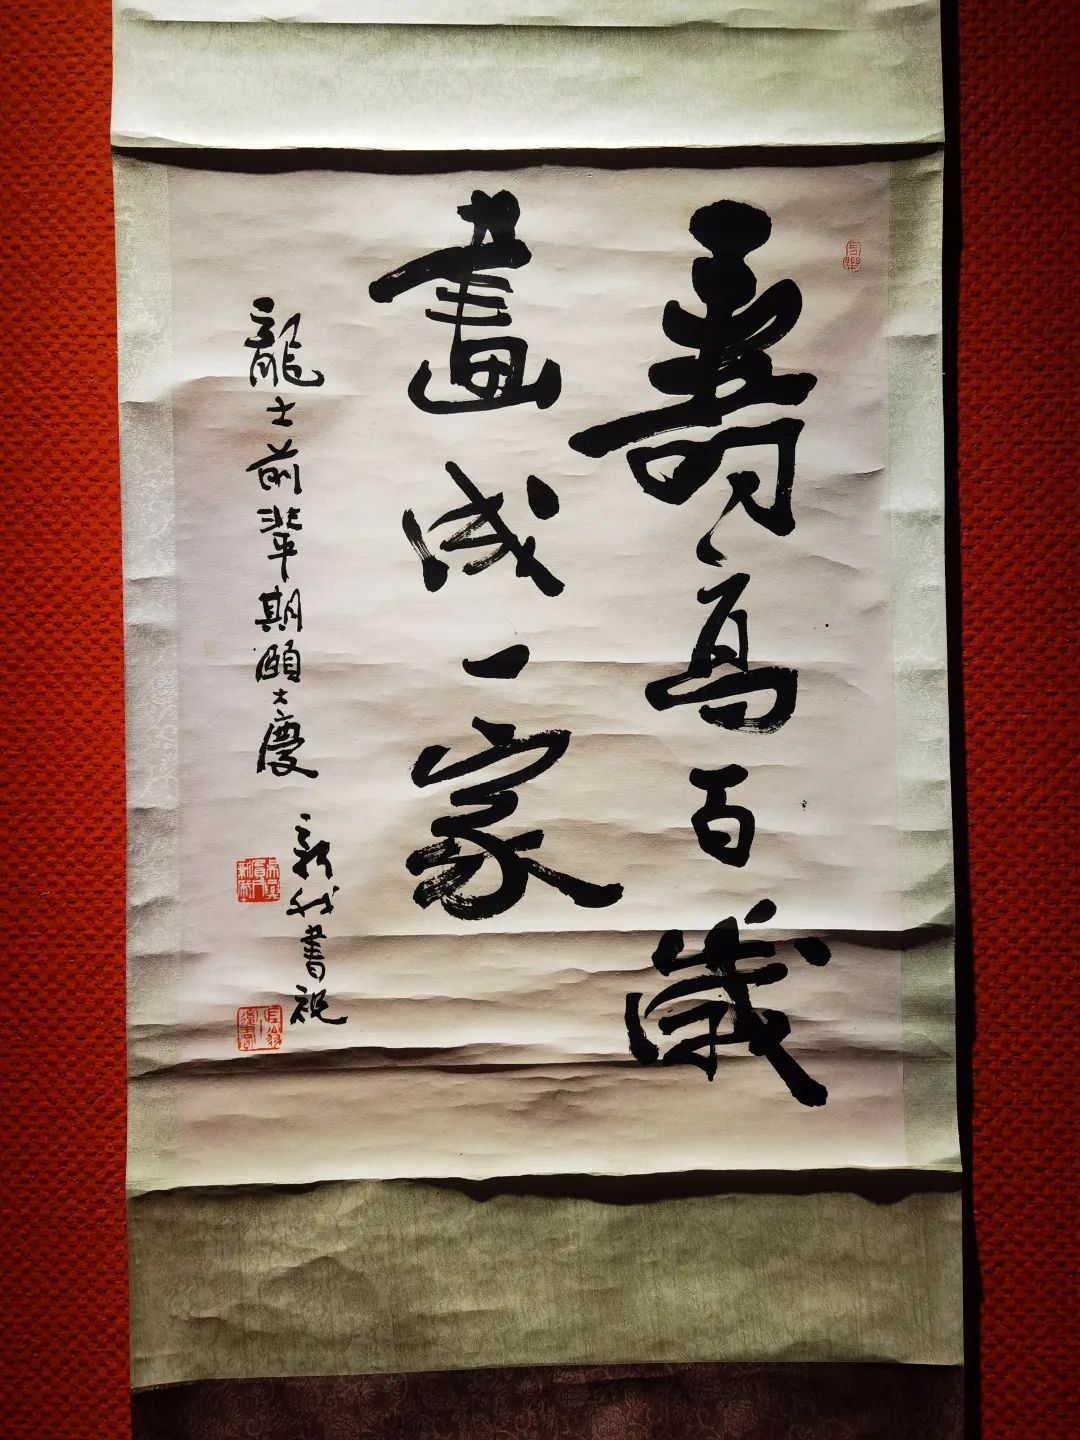 壽高百歲
畫成一家
龍士前輩期頤大慶
新我書祝